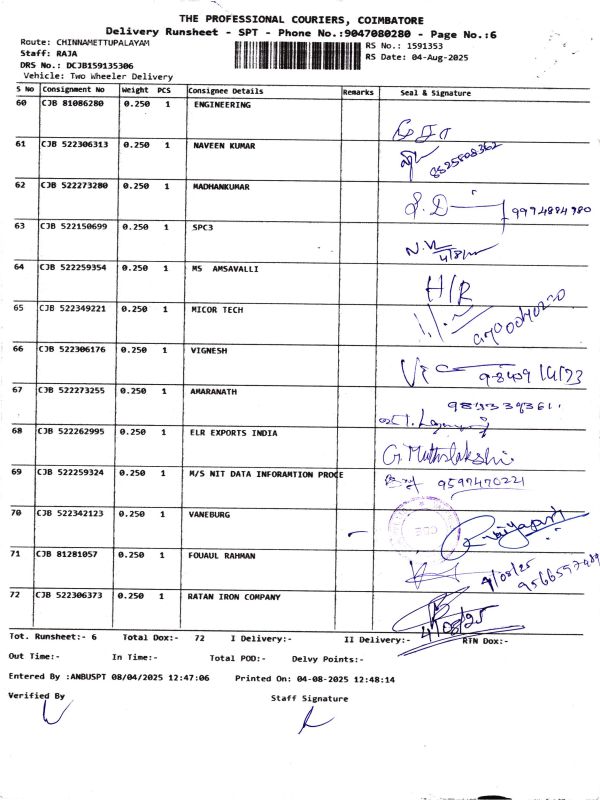 THE PROFESSIONAL COURIERS, COIMBATORE
Delivery Runsheet - SPT - Phone No.:9047080280 - Page No.:6
Route: CHINNAMETTUPALAYAM RS No.: 1591353
Staff: RAJA RS Date: 04-Aug-2025
DRS No.: DCJB159135306
Vehicle: Two Wheeler Delivery
S No Consignment No Weight PCS Consignee Details Remarks Seal & Signature
60 CJB 81086280 0.250 1 ENGINEERING
61 CJB 522306313 0.250 1 NAVEEN KUMAR
8825808362
62 CJB 522273280 0.250 1 MADHANKUMAR
9994884980
63 CJB 522150699 0.250 1 SPC3
64 CJB 522259354 0.250 1 MS AMSAVALLI
H/R
65 CJB 522349221 0.250 1 MICOR TECH
66 CJB 522306176 0.250 1 VIGNESH
67 CJB 522273255 0.250 1 AMARANATH
68 CJB 522262995 0.250 1 ELR EXPORTS INDIA
G. Muthulakshmi
69 CJB 522259324 0.250 1 M/S NIT DATA INFORAMTION PROCE
9597470221
70 CJB 522342123 0.250 1 VANEBURG
71 CJB 81281057 0.250 1 FOUAUL RAHMAN
4/08/25
9566597489
72 CJB 522306373 0.250 1 RATAN IRON COMPANY
4/08/25
Tot. Runsheet:- 6 Total Dox:- 72 I Delivery:- II Delivery:- RTN Dox:-
Out Time:- In Time:- Total POD:- Delvy Points:-
Entered By :ANBUSPT 08/04/2025 12:47:06 Printed On: 04-08-2025 12:48:14
Verified By Staff Signature